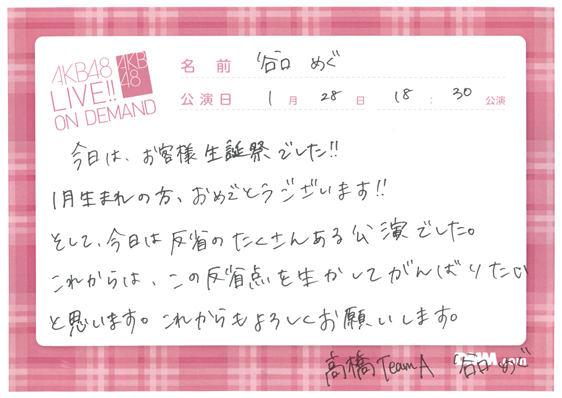 AKB48
LIVE!!
ON DEMAND
AKB
48
名 前 谷口 めぐ
公演日 1 月 28 日 18 : 30 公演
今日は、お客様生誕祭でした!!
1月生まれの方、おめでとうございます!!
そして、今日は反省のたくさんある公演でした。
これからは、この反省点を生かしてがんばりたい
と思います。これからもよろしくお願いします。
高橋TeamA 谷口 めぐ
.com